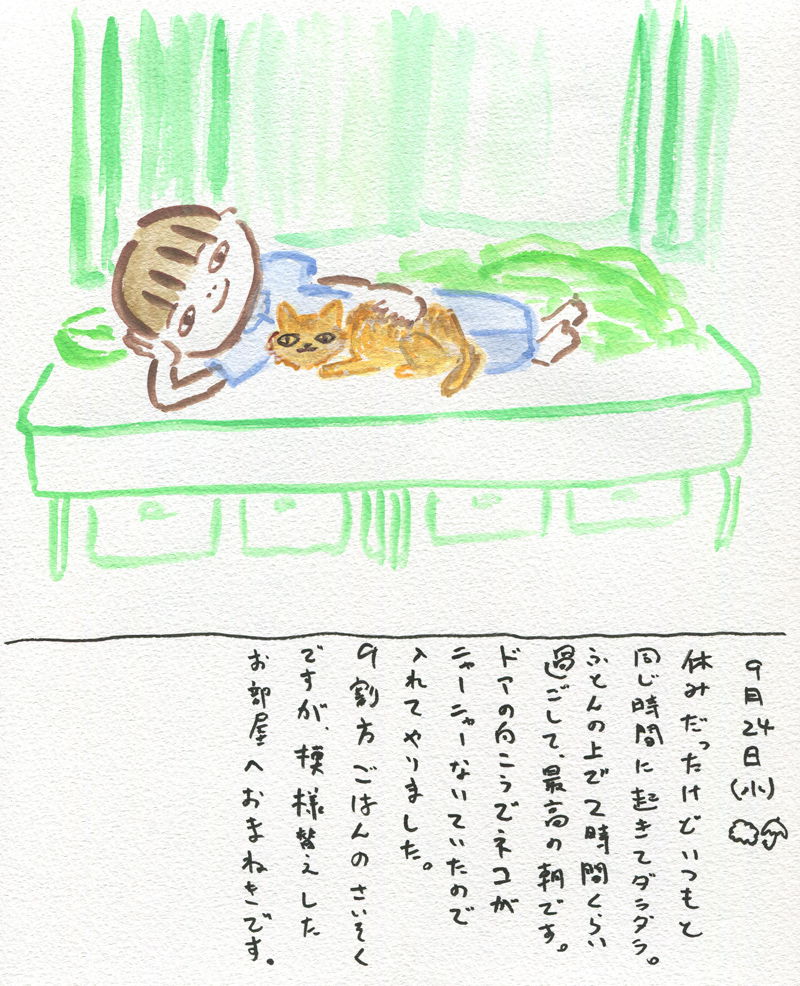 9月24日(水)
休みだったけどいつもと
同じ時間に起きてダラダラ。
ふとんの上で2時間くらい
過ごして、最高の朝です。
ドアの向こうでネコが
ニャーニャーないていたので
入れてやりました。
9割方ごはんのさいそく
ですが、模様替えした
お部屋へおまねきです。